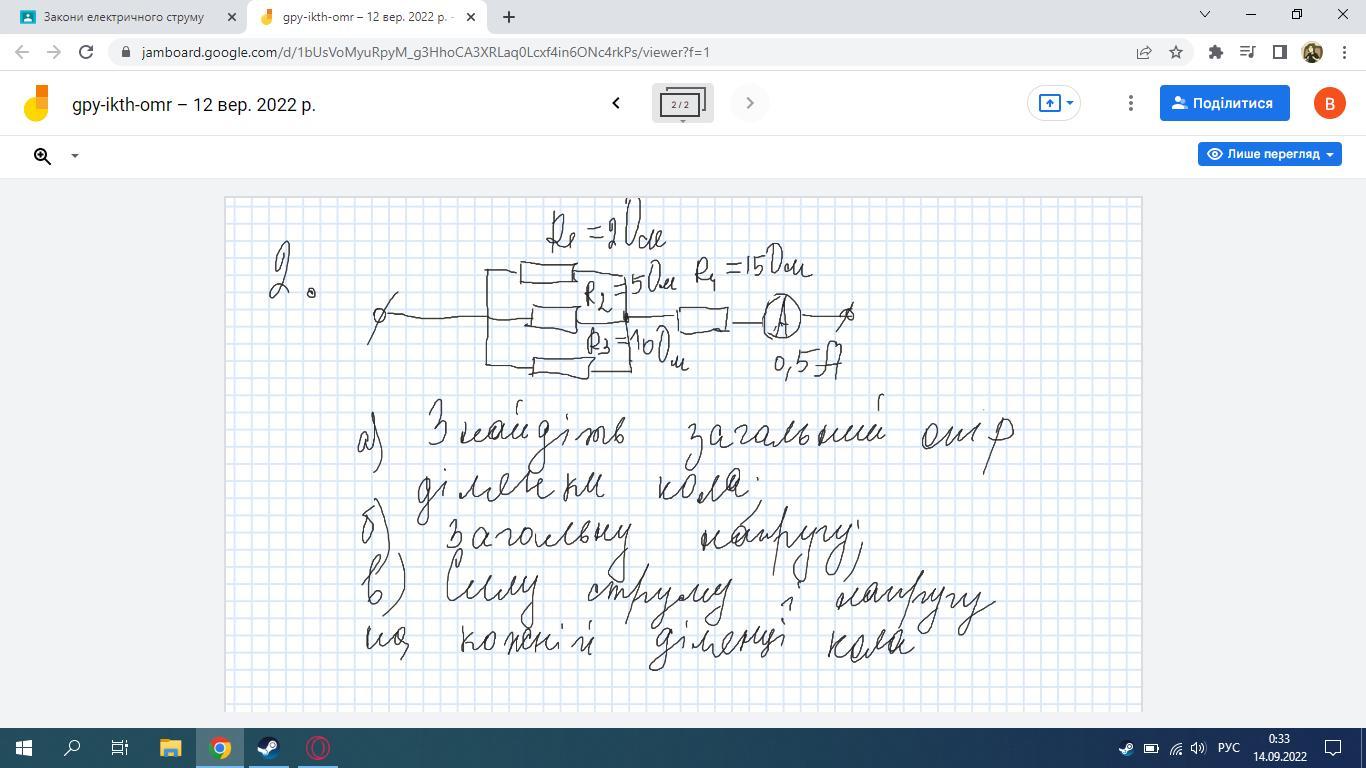 Закони електричного струму
gpy-ikth-omr – 12 вер. 2022 р. -
jamboard.google.com/d/1bUsVoMyuRpyM_g3HhoCA3XRLaq0Lcxf4in6ONc4rkPs/viewer?f=1
gpy-ikth-omr – 12 вер. 2022 р.
2 / 2
Поділитися
B
Лише перегляд
2.
R1 = 2 Ом
R2 = 5 Ом
R4 = 15 Ом
R3 = 10 Ом
A
0,5 A
а) Знайдіть загальний опір
ділянки кола;
б) Загальну напругу;
в) Силу струму і напругу
на кожній ділянці кола
РУС
0:33
14.09.2022